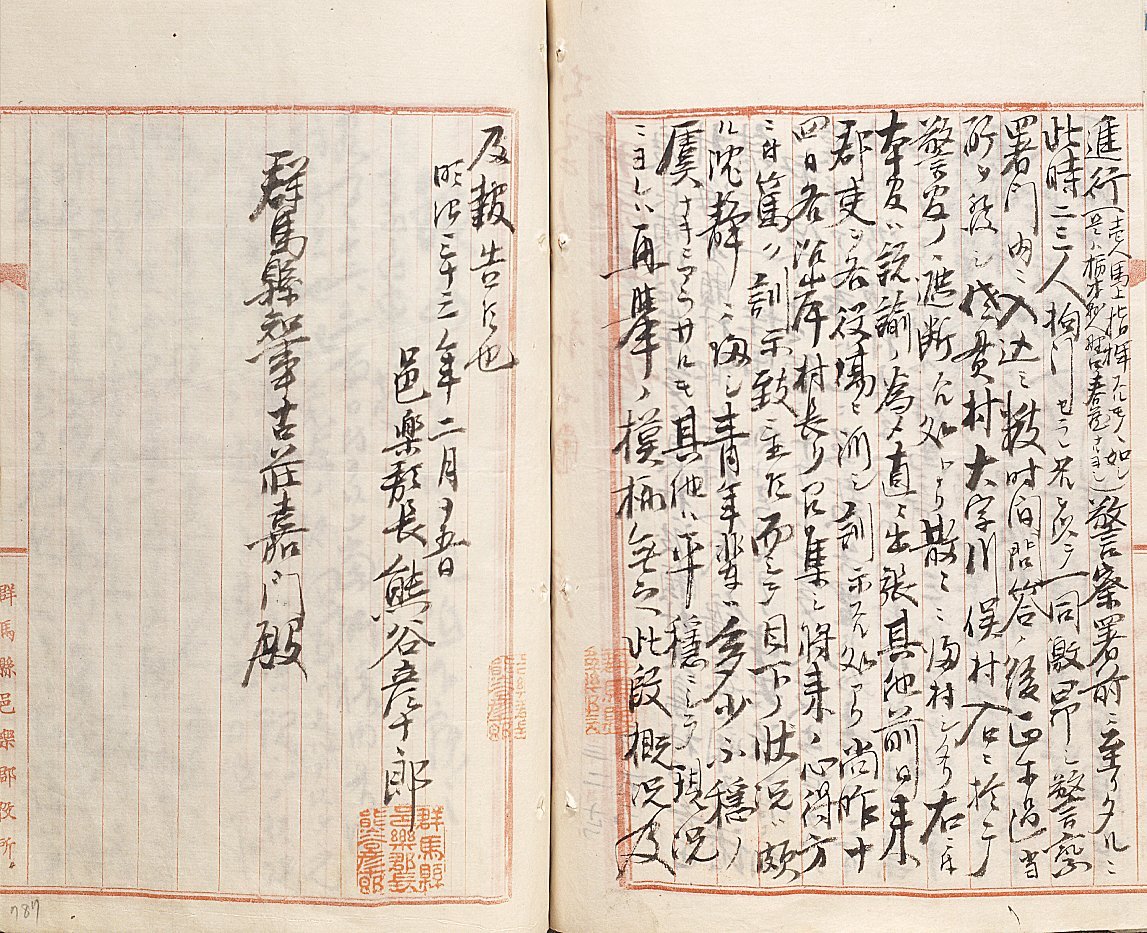 進行(老人馬上指揮スルモノヽ如シ
是ハ栃木縣人野口春蔵ナリシヨシ)警察署前ニ至リタルニ
此時二三人拘引セラレ居ルヲ以テ一同激昂シ警察
署門内ニ入込ミ数時間問答ノ後正午過当
所ヲ発シ佐貫村大字川俣村入口ニ於テ
警官ノ遮断スル処トナリ散々ニ帰村シタリ右ニ付
本官ハ説諭ノ為メ直ニ出張其他前日来
郡吏ヲ各役場ヘ派シ訓示スル処アリ尚昨十
四日各沿岸村長ヲ召集シ将来ノ心得方
ニ付篤ク訓示致置候而シテ目下ノ状況ハ頗
ル沈静ニ帰シ青年輩ハ多少不穏ノ
虞ナキニアラサルモ其他ハ平穏ニシテ現況
ニヨレハ再挙ノ模様無之此段概況及
及報告候也
明治三十三年二月十五日
邑楽郡長熊谷彦十郎
群馬縣邑樂郡長熊谷彦十郎
群馬縣知事古荘嘉門殿
群馬縣邑樂郡役所
787